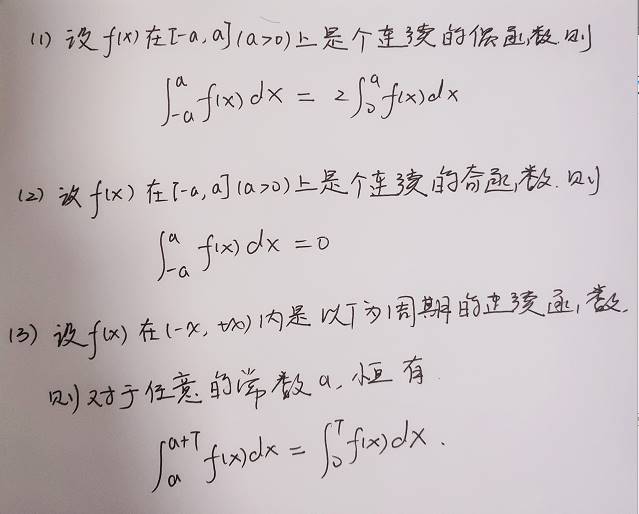 (1) 设f(x)在[-a,a](a>0)上是个连续的偶函数.则
∫_{-a}^{a} f(x)dx = 2∫_{0}^{a} f(x)dx
(2) 设f(x)在[-a,a](a>0)上是个连续的奇函数.则
∫_{-a}^{a} f(x)dx = 0
(3) 设f(x)在(-∞,+∞)内是以T为周期的连续函数.
则对于任意的常数a,恒有
∫_{a}^{a+T} f(x)dx = ∫_{0}^{T} f(x)dx.